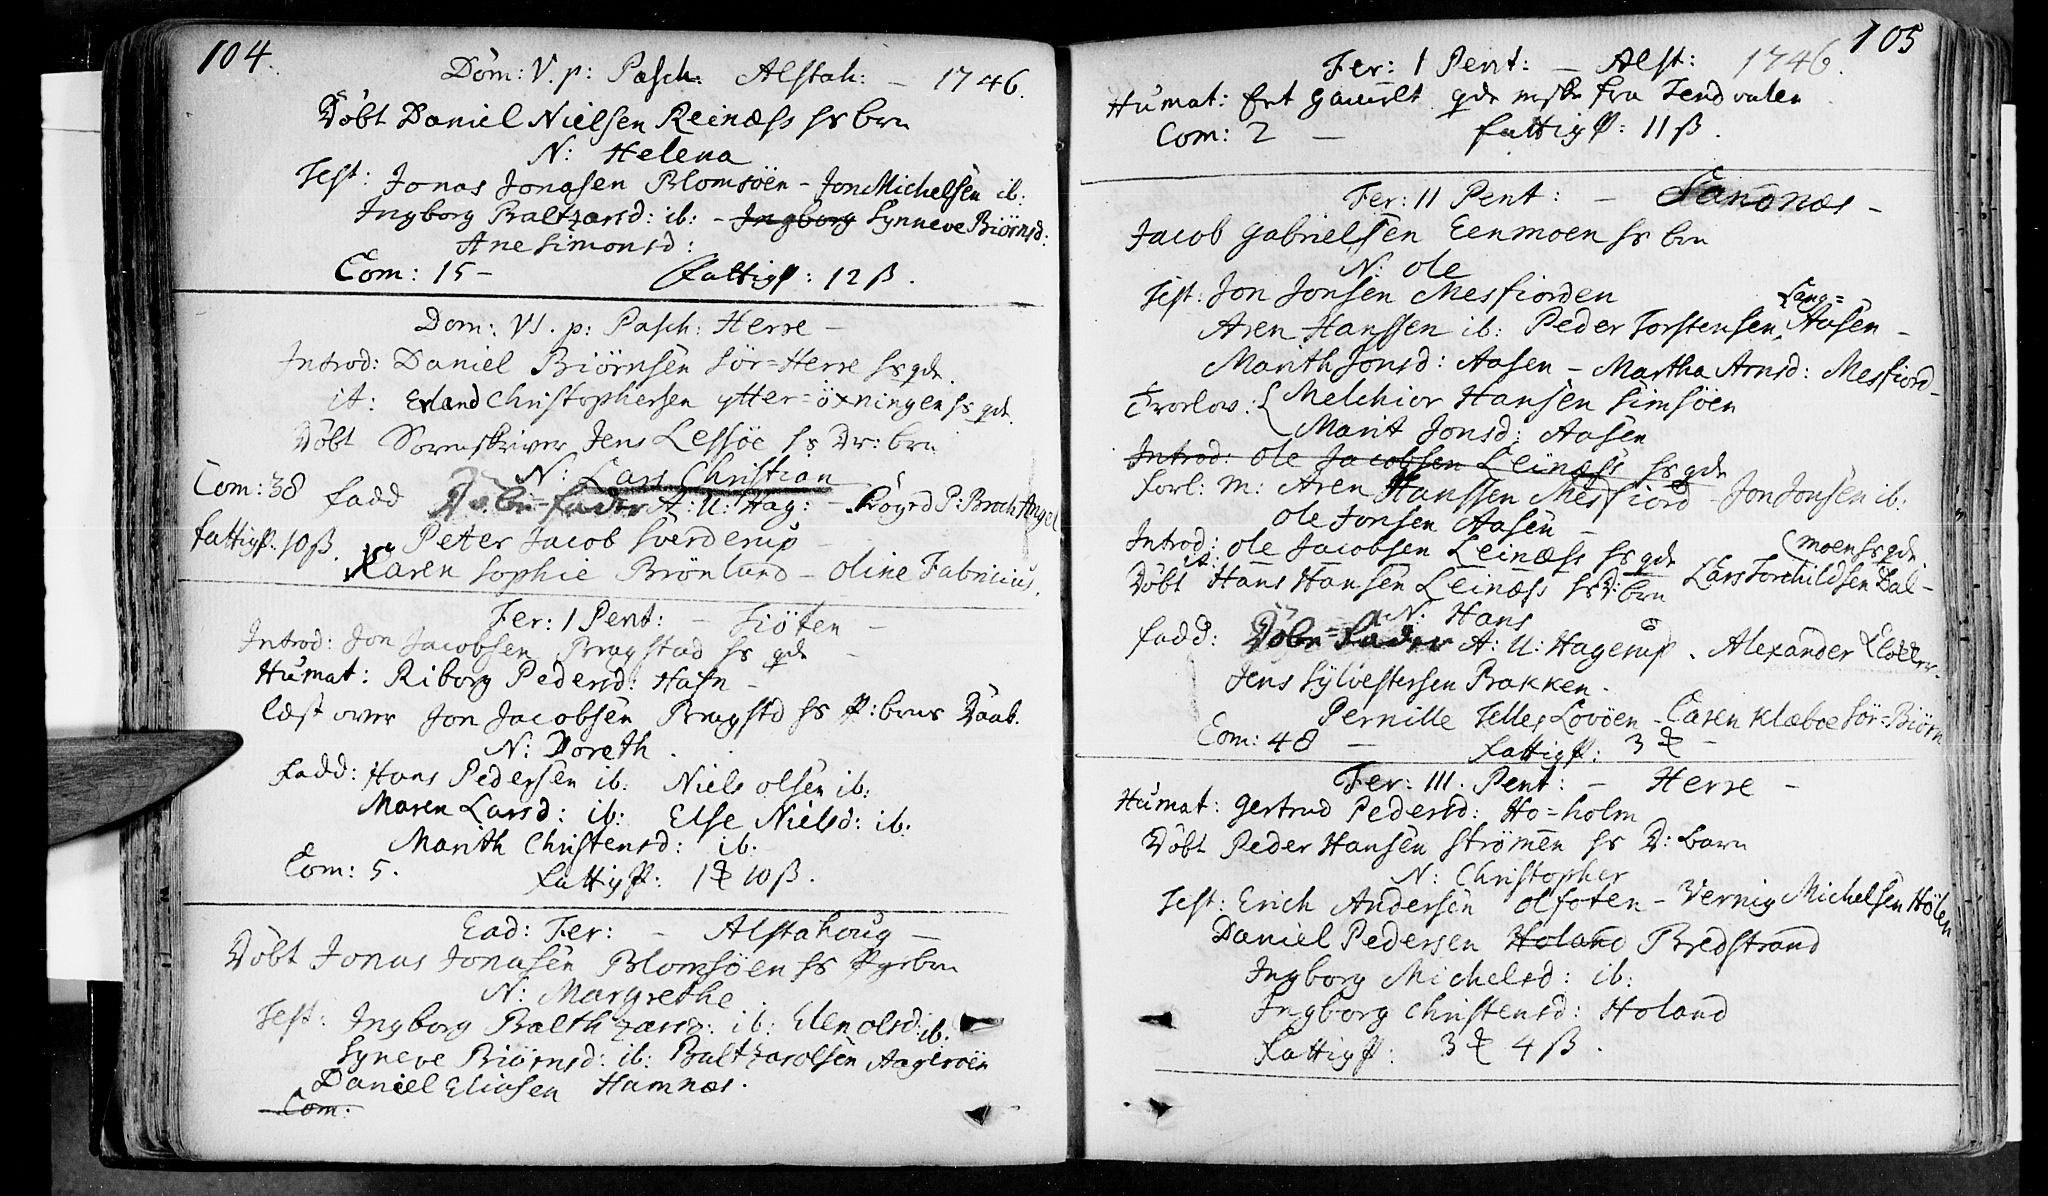 104.
Dom: V. p: Pasch: Alstah: — 1746.
Døbt Daniel Nielsen Reinæss hs brn
N: Helena
Test: Jonas Jonasen Blomsöen - Jon Michelsen ib:
Ingborg Baltzarsd: ib: - Ingborg Synneve Biörnsd:
Ane Simonsd:
Com: 15 - fattigP: 12 ß.
Dom: VI. p: Pasch: Herre —
Introd: Daniel Biörnsen Sör=Herre hs qde.
it: Erland Christophersen ytter=öxningen hs qde.
Döbt Sorenskriver Jens Lessöe hs Dr: brn
N: Lars Christian
Com: 38 fadd Döbe=fader A: U: Hag: — P: Broch Angel
fattigP. 10 ß. Peter Jacob Sverderup —
Karen Sophie Brönlund — Oline Fabricius.
Fer: 1 Pent: — Tiöten —
Introd: Jon Jacobsen Bragstad hs qde —
Humat: Riborg Pedersd: Hafn —
læst over Jon Jacobsen Bragstd hs P: brns Daab.
N: Doreth.
Fadd: Hans Pedersen ib: Niels Olsen ib:
Maren Larsd: ib: Else Nielsd: ib:
Marith Christensd: ib:
Com: 5. fattigP: 1 10 ß.
Ead: Fer: — Alstahoug —
Döbt Jonas Jonasen Blomsöen hs Pgebrn
N: Margrethe
Test: Ingborg Balthzarsd: ib: Elen Olsd: ib:
Syneve Biörnsd: ib: Baltzar Olsen
Daniel Eliasen Hamnæs.
Com:
105
Fer: 1 Pent: — Alst: 1746.
Humat: Eet gamelt qde mske fra Tendvalen
Com: 2 — fattigP: 11 ß.
Fer: 11 Pent: — Sandnæs —
Jacob Gabrielsen Eenmoen hs brn
N: Ole
Test: Jon Jonsen Mesfiorden
Aren Hanssen ib: Peder Torstensen Lang=Aasen —
Marith Jonsd: Aasen — Martha Arnsd: Mesfiord —
Trorlov: { Melchior Hansen Simsöen
Marit Jonsd: Aasen
Introd: Ole Jacobsen Leinæss hs qde
Forl: M: Aren Hanssen Mesfiord - Jon Jonsen ib:
Ole Jonsen Aasen —
Introd: Ole Jacobsen Leinæss hs qde (moen hs qde
Döbt Hans Hansen Leinæss hs D: brn Lars Torchildsen Dal-
N: Hans
fadd: Döbe=fader A: U: Hagerup. Alexander
Jens Sylvestersen Bakken.
Pernille Telles Lovöen — Caren Klæboe Sör=Biörn
Com: 48 — fattigP: 3 —
Fer: 111. Pent: — Herre —
Humat: Gertrud Pedersd: Ho=holm
Döbt Peder Hansen Strömen hs D: barn
N: Christopher
Test: Erich Andersen Olfoten — Vernig Michelsen Hölen
Daniel Pedersen Holand Bredstrand
Ingborg Michelsd: ib:
Ingborg Christensd: Holand
fattigP: 3 4 ß.